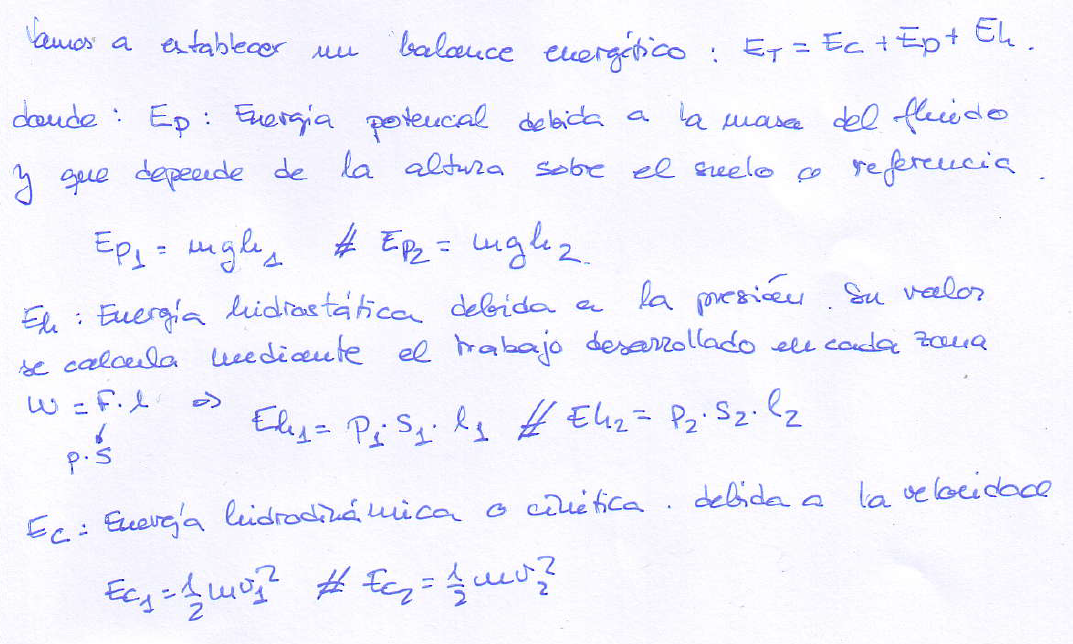 Vamos a establecer un balance energético : E_T = E_C + E_p + E_h .
donde : E_p : Energía potencial debida a la masa del fluido
y que depende de la altura sobre el suelo o referencia .
E_p1 = mgh_1 # E_p2 = mgh_2 .
E_h : Energía hidrostática debida a la presión . Su valor
se calcula mediante el trabajo desarrollado en cada zona
W = F · l ⇒ E_h1 = P_1 · S_1 · l_1 # E_h2 = P_2 · S_2 · l_2
p · S
E_C : Energía hidrodinámica o cinética . debida a la velocidad
E_C1 = 1/2 m v_1^2 # E_C2 = 1/2 m v_2^2